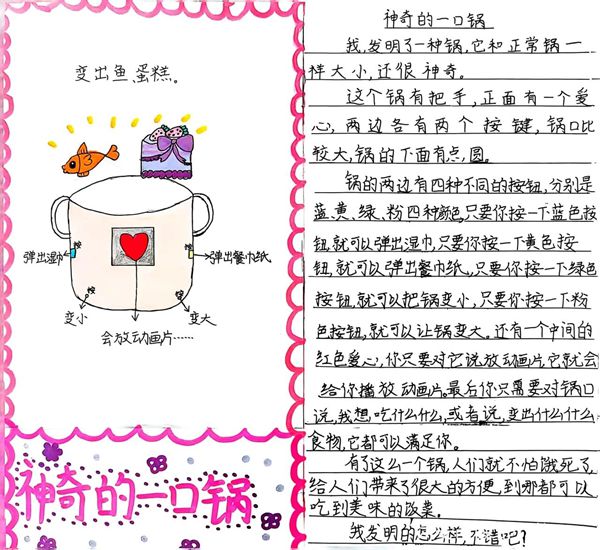 变出鱼、蛋糕。
弹出湿巾
按
按
弹出餐巾纸
按
按
变小
变大
会放动画片……
神奇的一口锅
神奇的一口锅
我发明了一种锅,它和正常锅一
样大小,还很神奇。
这个锅有把手,正面有一个爱
心,两边各有两个按键,锅口比
较大,锅的下面有点圆。
锅的两边有四种不同的按钮,分别是
蓝、黄、绿、粉四种颜色,只要你按一下蓝色按
钮,就可以弹出湿巾,只要你按一下黄色按
钮,就可以弹出餐巾纸,只要你按一下绿色
按钮,就可以把锅变小,只要你按一下粉
色按钮,就可以让锅变大。还有一个中间的
红色爱心,你只要对它说放动画片,它就会
给你播放动画片。最后你只需要对锅口
说,我想吃什么什么,或者说变出什么什么
食物,它都可以满足你。
有了这么一个锅,人们就不怕饿死了,
给人们带来了很大的方便,到哪都可以
吃到美味的饭菜。
我发明的怎么样,不错吧?